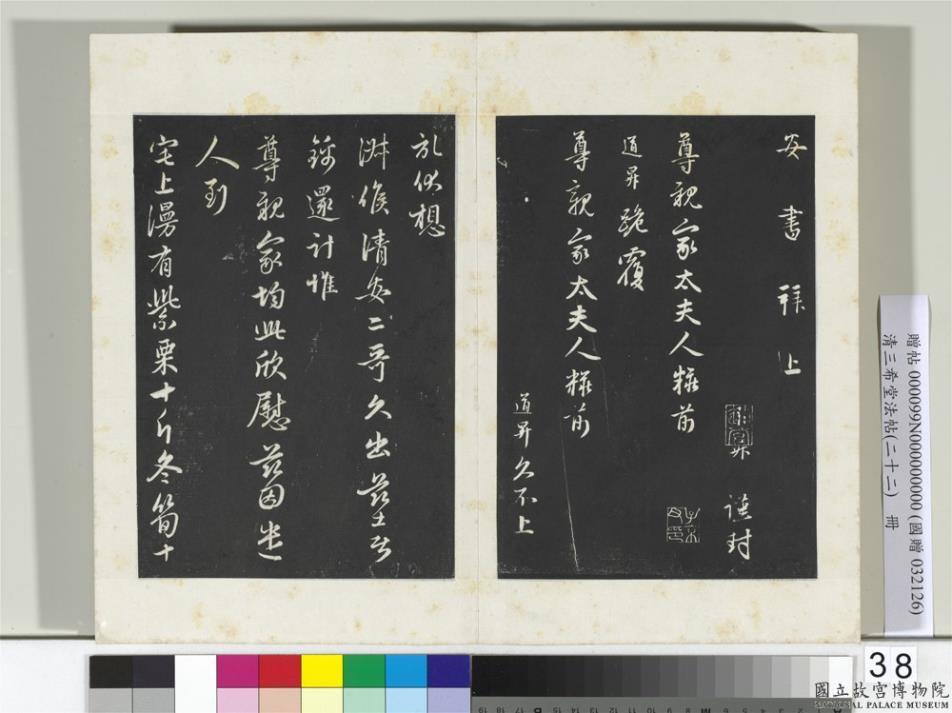 安書拜上
尊親家太夫人粧前
謹封
道昇跪覆
尊親家太夫人粧前
道昇久不上
伏想
淑候清安二哥久出茲
錦還計惟
尊親家均此欣慰茲因遣
人到
宅上謾有紫栗十斤冬筍十
贈帖 0000099N000000000 (國贈 032126)
清三希堂法帖(二十二) 冊
38
國立故宮博物院
NATIONAL PALACE MUSEUM